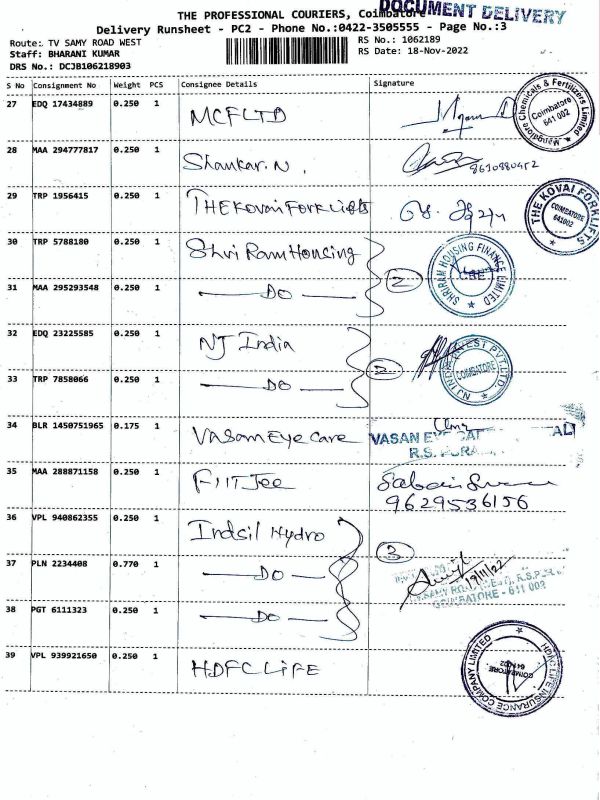 DOCUMENT DELIVERY
THE PROFESSIONAL COURIERS, Coimbatore
Delivery Runsheet - PC2 - Phone No.:0422-3505555 - Page No.:3
Route: TV SAMY ROAD WEST
RS No.: 1062189
Staff: BHARANI KUMAR
RS Date: 18-Nov-2022
DRS No.: DCJB106218903
S No Consignment No Weight PCS Consignee Details Signature
27 EDQ 17434889 0.250 1 MCFLTD
Mangalore Chemicals & Fertilizers Limited
Coimbatore
641 002
28 MAA 294777817 0.250 1 Shankar.N.
29 TRP 1956415 0.250 1 THE Kovai Forklifts
THE KOVAI FORKLIFTS
COIMBATORE
641002
30 TRP 5788180 0.250 1 Shri Ram Housing
2
SHRIRAM HOUSING FINANCE LIMITED
CBE
31 MAA 295293548 0.250 1 DO
32 EDQ 23225585 0.250 1 NJ India
2
COIMBATORE
33 TRP 7858066 0.250 1 DO
34 BLR 1450751965 0.175 1 Vasam Eye care
VASAN
R.S. PURAM
35 MAA 288871158 0.250 1 FIITJee
9629536156
36 VPL 940862355 0.250 1 Indsil Hydro
3
37 PLN 2234408 0.770 1 DO
19/11/22
COIMBATORE - 641 002
38 PGT 6111323 0.250 1 DO
39 VPL 939921650 0.250 1 HDFC LIFE
HDFC LIFE INSURANCE COMPANY LIMITED
COIMBATORE
641 002